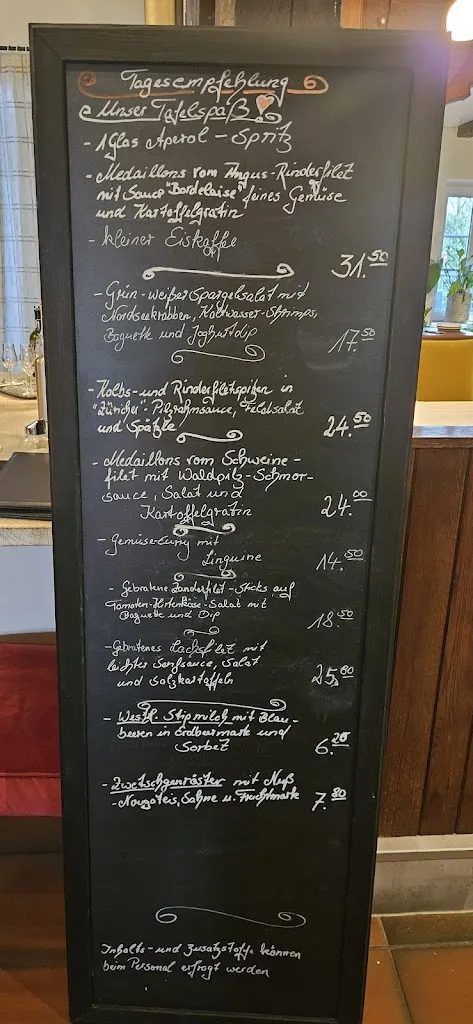 Tagesempfehlung
Unser Tafelspaß
- 1 Glas Aperol - Spritz
- Medaillons vom Angus-Rinderfilet
mit Sauce "Bordelaise" feines Gemüse
und Kartoffelgratin
- kleiner Eiskaffee
31.50
- Grün-weißer Spargelsalat mit
Nordseekrabben, Kaltwasser-Shrimps,
Baguette und Joghurtdip
17.50
- Kalbs- und Rinderfiletspitzen in
"Züricher"-Pilzrahmsauce, Feldsalat
und Spätzle
24.50
- Medaillons vom Schweine-
filet mit Waldpilz-Schmor-
sauce, Salat und
Kartoffelgratin
24.00
- Gemüse-Curry mit
Linguine
14.50
- Gebratene Zanderfilet-Sticks auf
Tomaten-Hirtenkäse-Salat mit
Baguette und Dip
18.50
- Gebratenes Lachsfilet mit
leichter Senfsauce, Salat
und Salzkartoffeln
25.80
- Westf. Stipmilch mit Blau-
beeren in Erdbeermark und
Sorbet
6.20
- Zwetschgenröster mit Nuß
-Nougateis, Sahne u. Fruchtmark
7.80
Inhalts- und Zusatzstoffe können
beim Personal erfragt werden